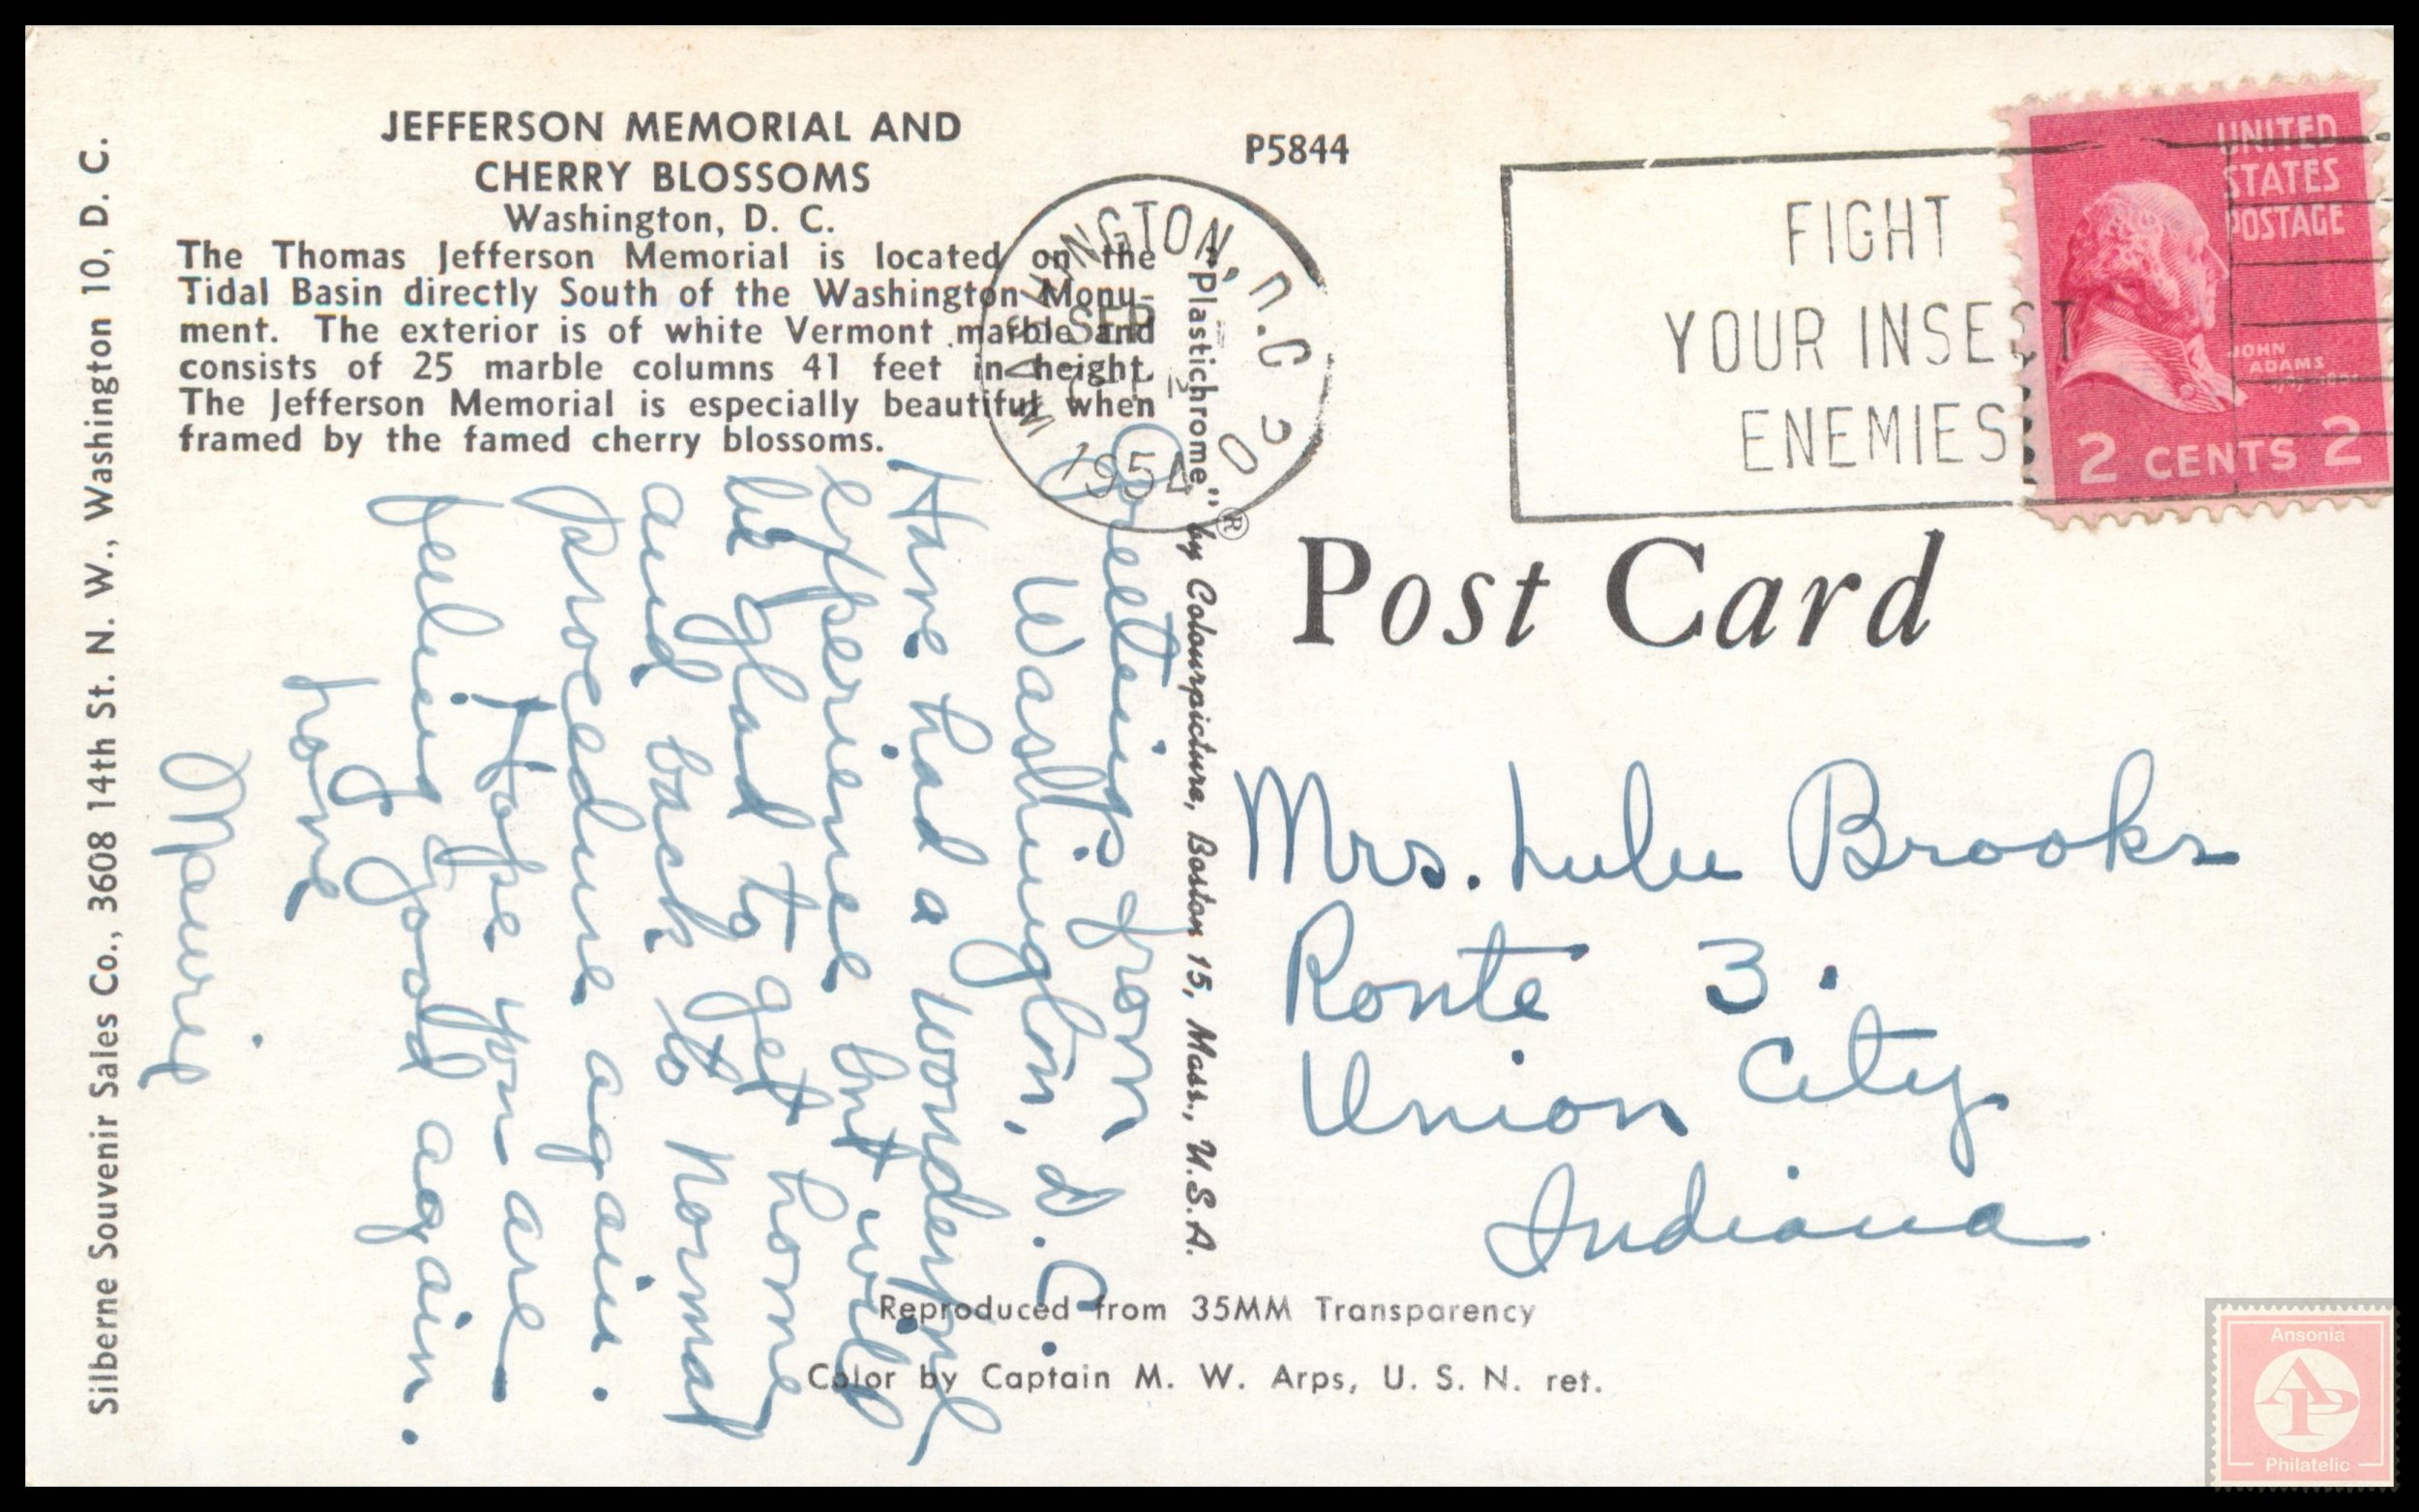 JEFFERSON MEMORIAL AND
CHERRY BLOSSOMS
Washington, D. C.
The Thomas Jefferson Memorial is located on the
Tidal Basin directly South of the Washington Monu-
ment. The exterior is of white Vermont marble and
consists of 25 marble columns 41 feet in height.
The Jefferson Memorial is especially beautiful when
framed by the famed cherry blossoms.
Silberne Souvenir Sales Co., 3608 14th St. N. W., Washington 10, D. C.
Greetings from
Washington, D.C.
Have had a wonderful
experience but will
be glad to get home
and back to normal
procedure again.
Hope you are
feeling good again.
home
Maurie
"Plastichrome" ® by Colourpicture, Boston 15, Mass., U.S.A.
P5844
WASHINGTON, D.C. 20
SEP
1954
FIGHT
YOUR INSECT
ENEMIES
UNITED
STATES
POSTAGE
JOHN
ADAMS
2 CENTS 2
Post Card
Mrs. Lulu Brooks
Route 3.
Union City
Indiana
Reproduced from 35MM Transparency
Color by Captain M. W. Arps, U. S. N. ret.
Ansonia
AP
Philatelic